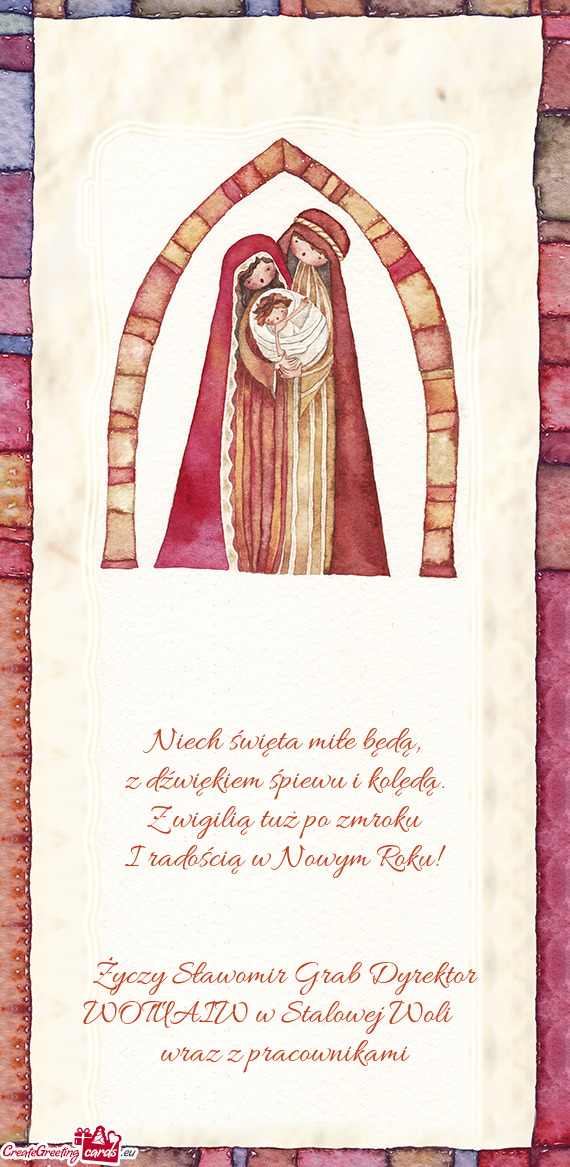 Niech święta miłe będą,
z dźwiękiem śpiewu i kolędą.
Z wigilią tuż po zmroku
I radością w Nowym Roku!
Życzy Sławomir Grab Dyrektor
WOTUAIW w Stalowej Woli
wraz z pracownikami
CreateGreetingcards.eu